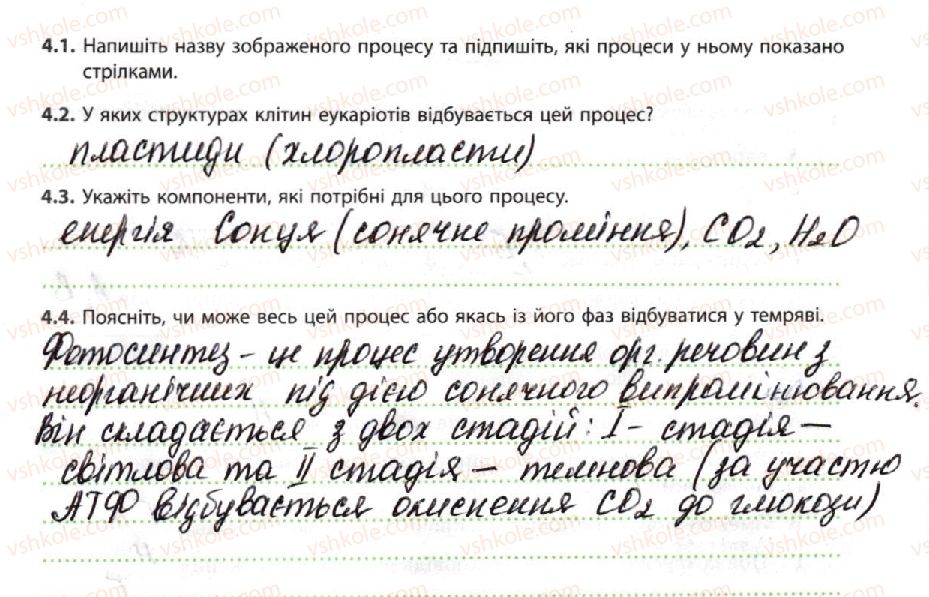 4.1. Напишіть назву зображеного процесу та підпишіть, які процеси у ньому показано
стрілками.
4.2. У яких структурах клітин еукаріотів відбувається цей процес?
пластиди (хлоропласти)
4.3. Укажіть компоненти, які потрібні для цього процесу.
енергія Сонця (сонячне проміння), CO2, H2O
4.4. Поясніть, чи може весь цей процес або якась із його фаз відбуватися у темряві.
Фотосинтез – це процес утворення орг. речовин з
неорганічних під дією сонячного випромінювання.
Він складається з двох стадій: I – стадія –
світлова та II стадія – темнова (за участю
АТФ відбувається окиснення CO2 до глюкози)